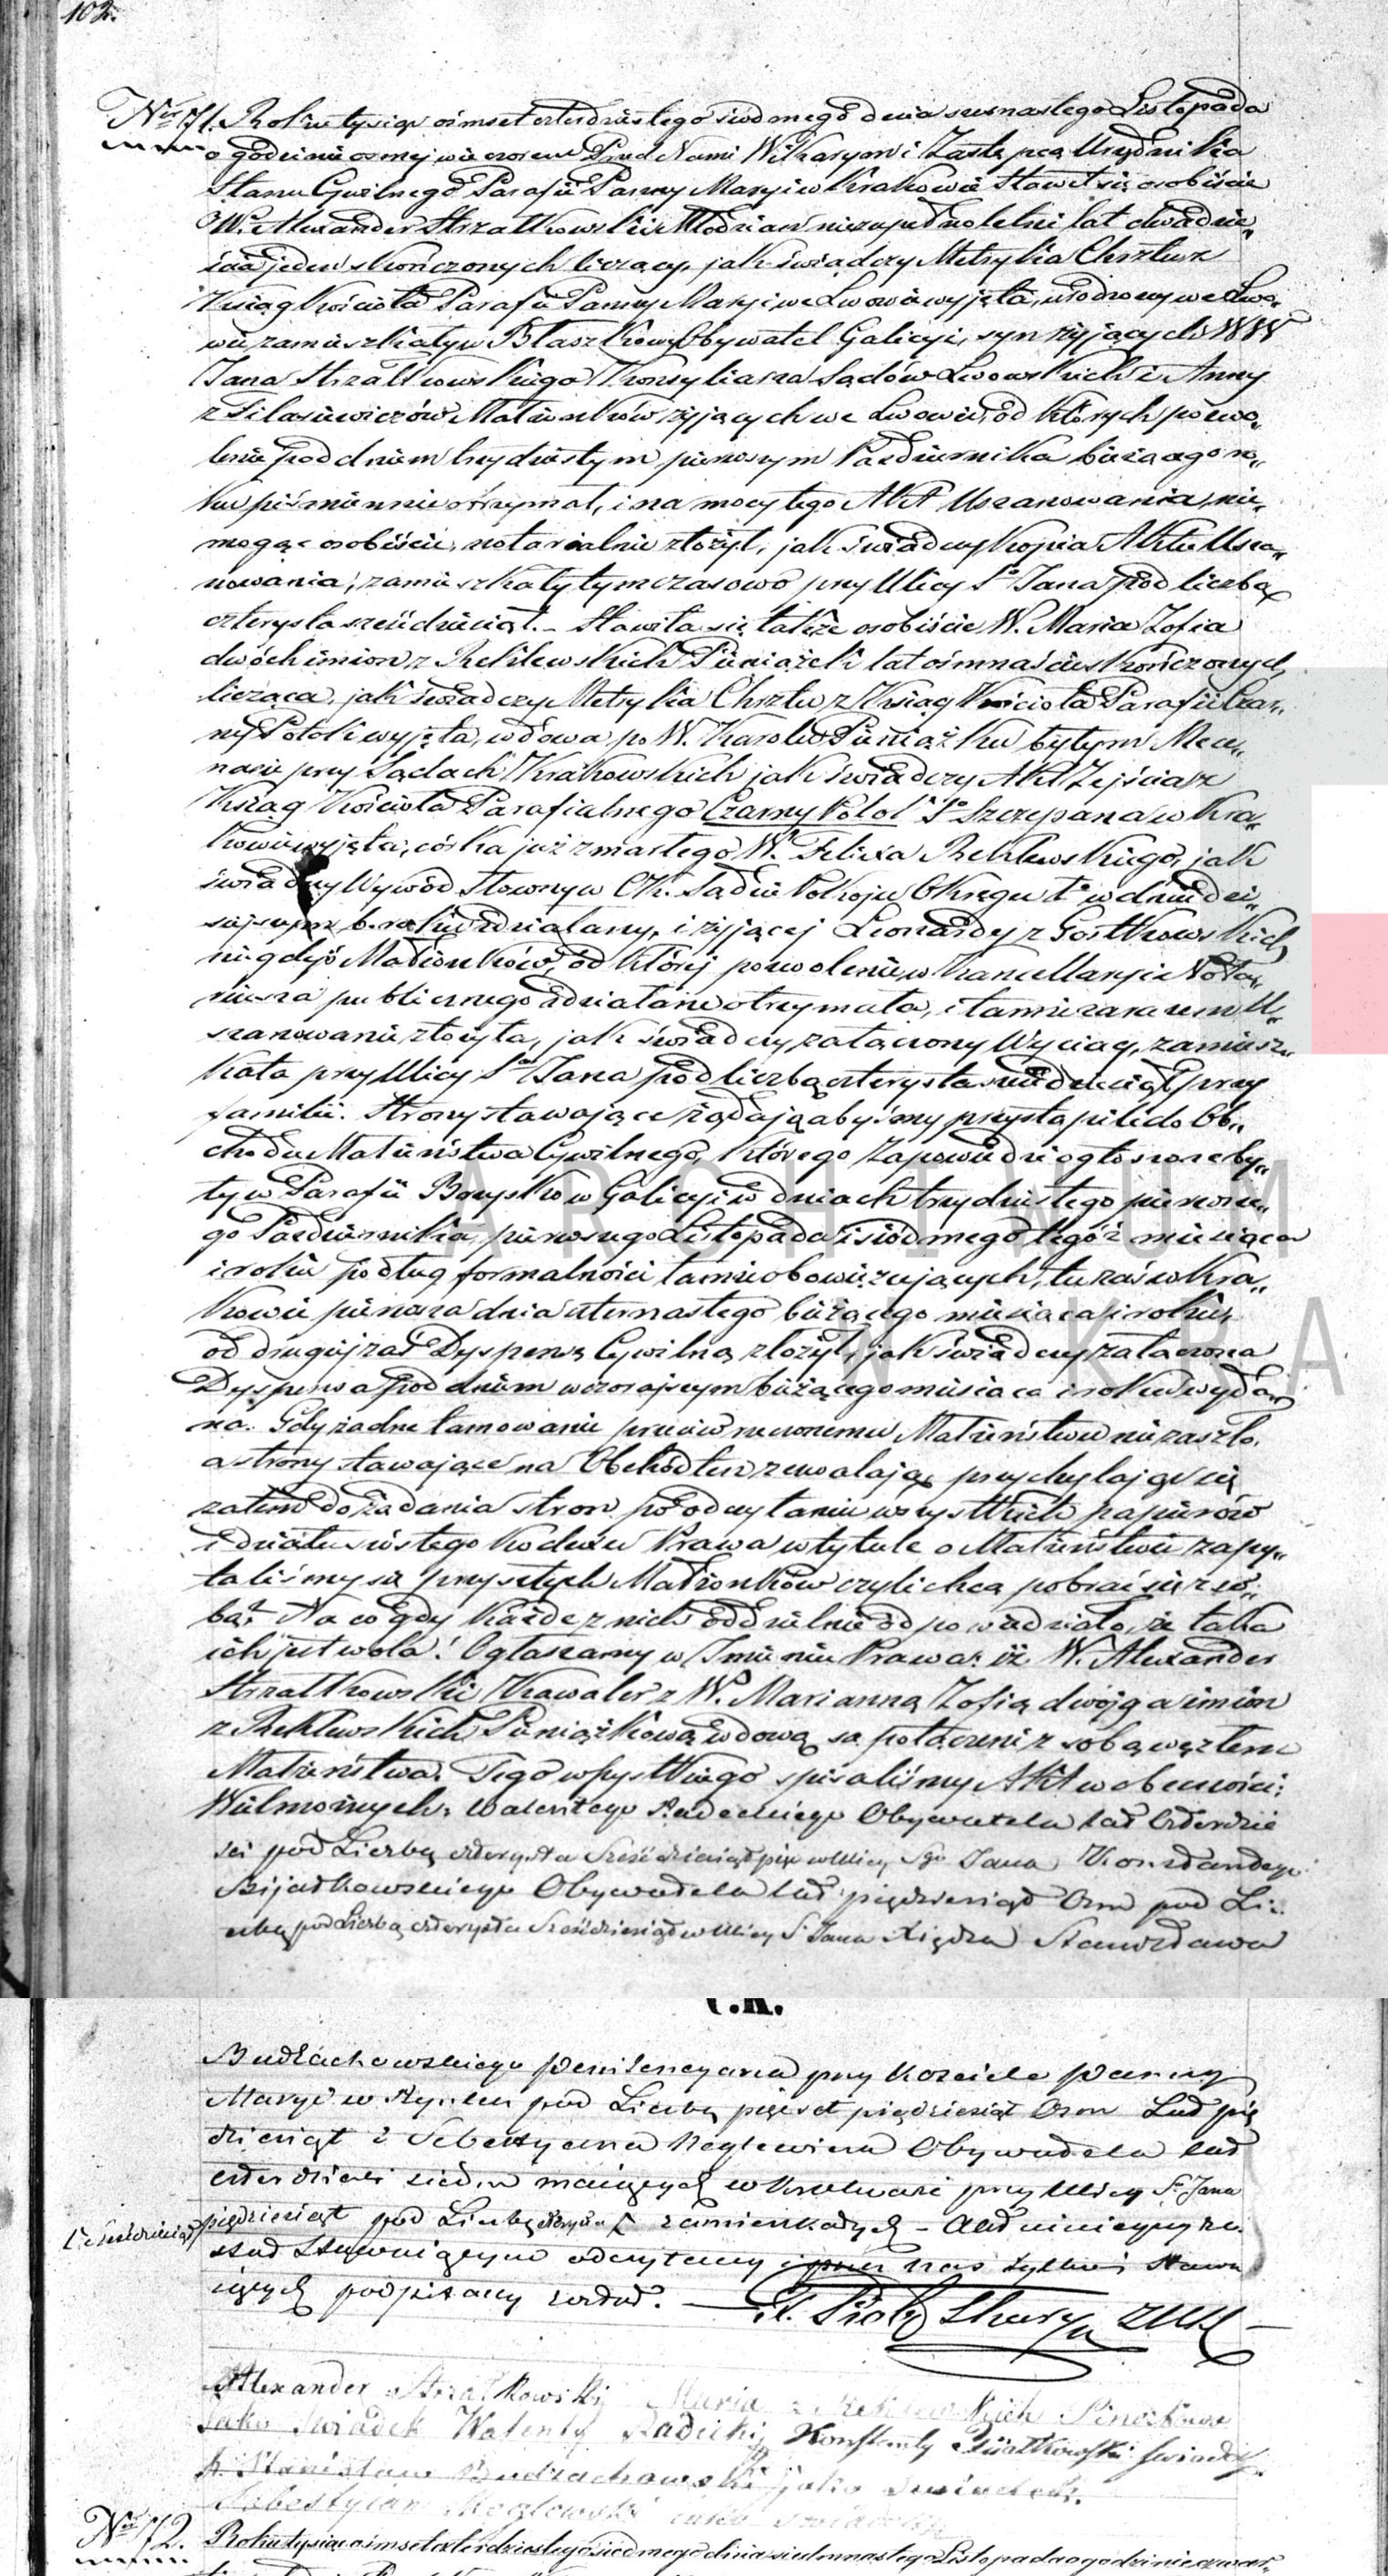 102.
Nr 71. Roku tysiąc ośmset czterdziestego siódmego dnia szesnastego Listopada
o godzinie osmej wieczorem Przed Nami Wikarym i Zastępcą Urzędnika
Stanu Cywilnego Parafii Panny Maryi w Krakowie Stawił się osobiście
W. Alexander Strzałkowski Młodzian niezupełnoletni lat dwadzie„
ścia jeden skończonych liczący, jak świadczy Metryka Chrztu z
Ksiąg Kościoła Parafii Panny Maryi we Lwowie wyjęta, urodzony we Lwo„
wie zamieszkały w Błaszkowy Obywatel Galicyi, syn żyjących WW
Jana Strzałkowskiego Konsyliarza Sądów Lwowskich i Anny
z Filasiewiczów Małżonków żyjących we Lwowie, od których pozwo„
lenie pod dniem trzydziestym pierwszym Października bieżącego ro„
ku piśmiennie otrzymał, i na mocy tego Akt Uszanowania, nie„
mogąc osobiście, notarialnie złożył, jak świadczy kopia Aktu Usza„
nowania, zamieszkały tymczasowo przy Ulicy Sgo Jana pod liczbą
czterysta sześćdziesiąt. – Stawiła się także osobiście W. Maria Zofia
dwóch imion z Reklewskich Pieniążek lat ośmnaście skończonych
licząca, jak świadczy Metryka Chrztu z Ksiąg Kościoła Parafii Czar„
ny Potok wyjęta, wdowa po W. Karolu Pieniążku byłym Mece„
nasie przy Sądach Krakowskich jak świadczy Akt Zejścia z
Ksiąg Kościoła Parafialnego Czarny Potok Sgo Szczepana w Kra„
kowie wyjęta, córka już zmarłego W. Felixa Reklewskiego, jak
świadczy Wywód Słowny w CK. Sądzie Pokoju Okręgu Igo w dniu dzi„
siejszym b. roku zdziałany, i żyjącej Leonardy z Gostkowskich
niegdyś Małżonków, od której pozwolenie w Kancellaryi Nota„
riusza publicznego zdziałane otrzymała, i tamże zarazem U„
szanowanie złożyła, jak świadczy załączony Wyciąg, zamiesz„
kała przy Ulicy Sgo Jana pod liczbą czterysta sześćdziesiąt przy
familii. Strony stawające żądają abyśmy przystąpili do Ob„
chodu Małżeństwa Cywilnego, którego Zapowiedzi ogłoszone by„
ły w Parafii Brzysko w Galicyi w dniach trzydziestego pierwsze„
go Października, pierwszego Listopada i siódmego tegoż miesiąca
i roku podług formalności tamże obowiązujących, tu zaś w Kra„
kowie pierwsza dnia czternastego bieżącego miesiąca i roku,
od drugiej zaś Dyspensę Cywilną złożył, jak świadczy załączona
Dyspensa pod dniem wczorajszym bieżącego miesiąca i roku wyda„
na. Gdy żadne tamowanie przeciw rzeczonemu Małżeństwu nie zaszło,
a strony stawające na Obchód ten zezwalają, przychylając się
zatem do żądania stron po odczytaniu wszystkich papierów
i działu szóstego Kodexu Prawa w tytule o Małżeństwie zapy„
taliśmy się przyszłych Małżonków czyli chcą pobrać się z so„
bą? Na co gdy każde z nich oddzielnie odpowiedziało, że taka
ich jest wola! Ogłaszamy w Imieniu Prawa: iż W. Alexander
Strzałkowski Kawaler z W. Marianną Zofią dwojga imion
z Reklewskich Pieniążkową wdową są połączeni z sobą węzłem
Małżeństwa. Tego wszystkiego spisaliśmy Akt w obecności:
Wielmożnych: Walentego Radeckiego Obywatela lat czterdzie
ści pod Liczbą czterysta sześćdziesiąt pięć w Ulicy Sgo Jana Konstantego
Obywatela lat pięćdziesiąt Osm pod Li„
czbą pod Liczbą czterysta sześćdziesiąt w Ulicy S Jana Xiędza Stanisława
C.K.
Budziachowskiego Penitencyarza przy kościele Panny
Maryi w Rynku pod Liczbą pięćset pięćdziesiąt Osm Lat pię
dziesiąt i Sebastyana Obywatela lat
czterdzieści siedm mających w Krakowie przy Ulicy S. Jana
pięćdziesiąt pod Liczbą czterysta zamieszkałych – Akt niniejszy zo„
stał Stawającym odczytany i przez nas tychże i Stawa
jących podpisany został. –
X. Piotr ZUSC –
Alexander Strzałkowski Maria z Reklewskich
Jako Świadek Walenty Radecki Konstanty świadek
X. Stanisław Budziachowski jako Świadek
Sebestyian jako Świadek
Nr 72. Roku tysiąc ośmset czterdziestego siódmego dnia siedmnastego Listopada o godzinie
ARCHIWUM
W KRA